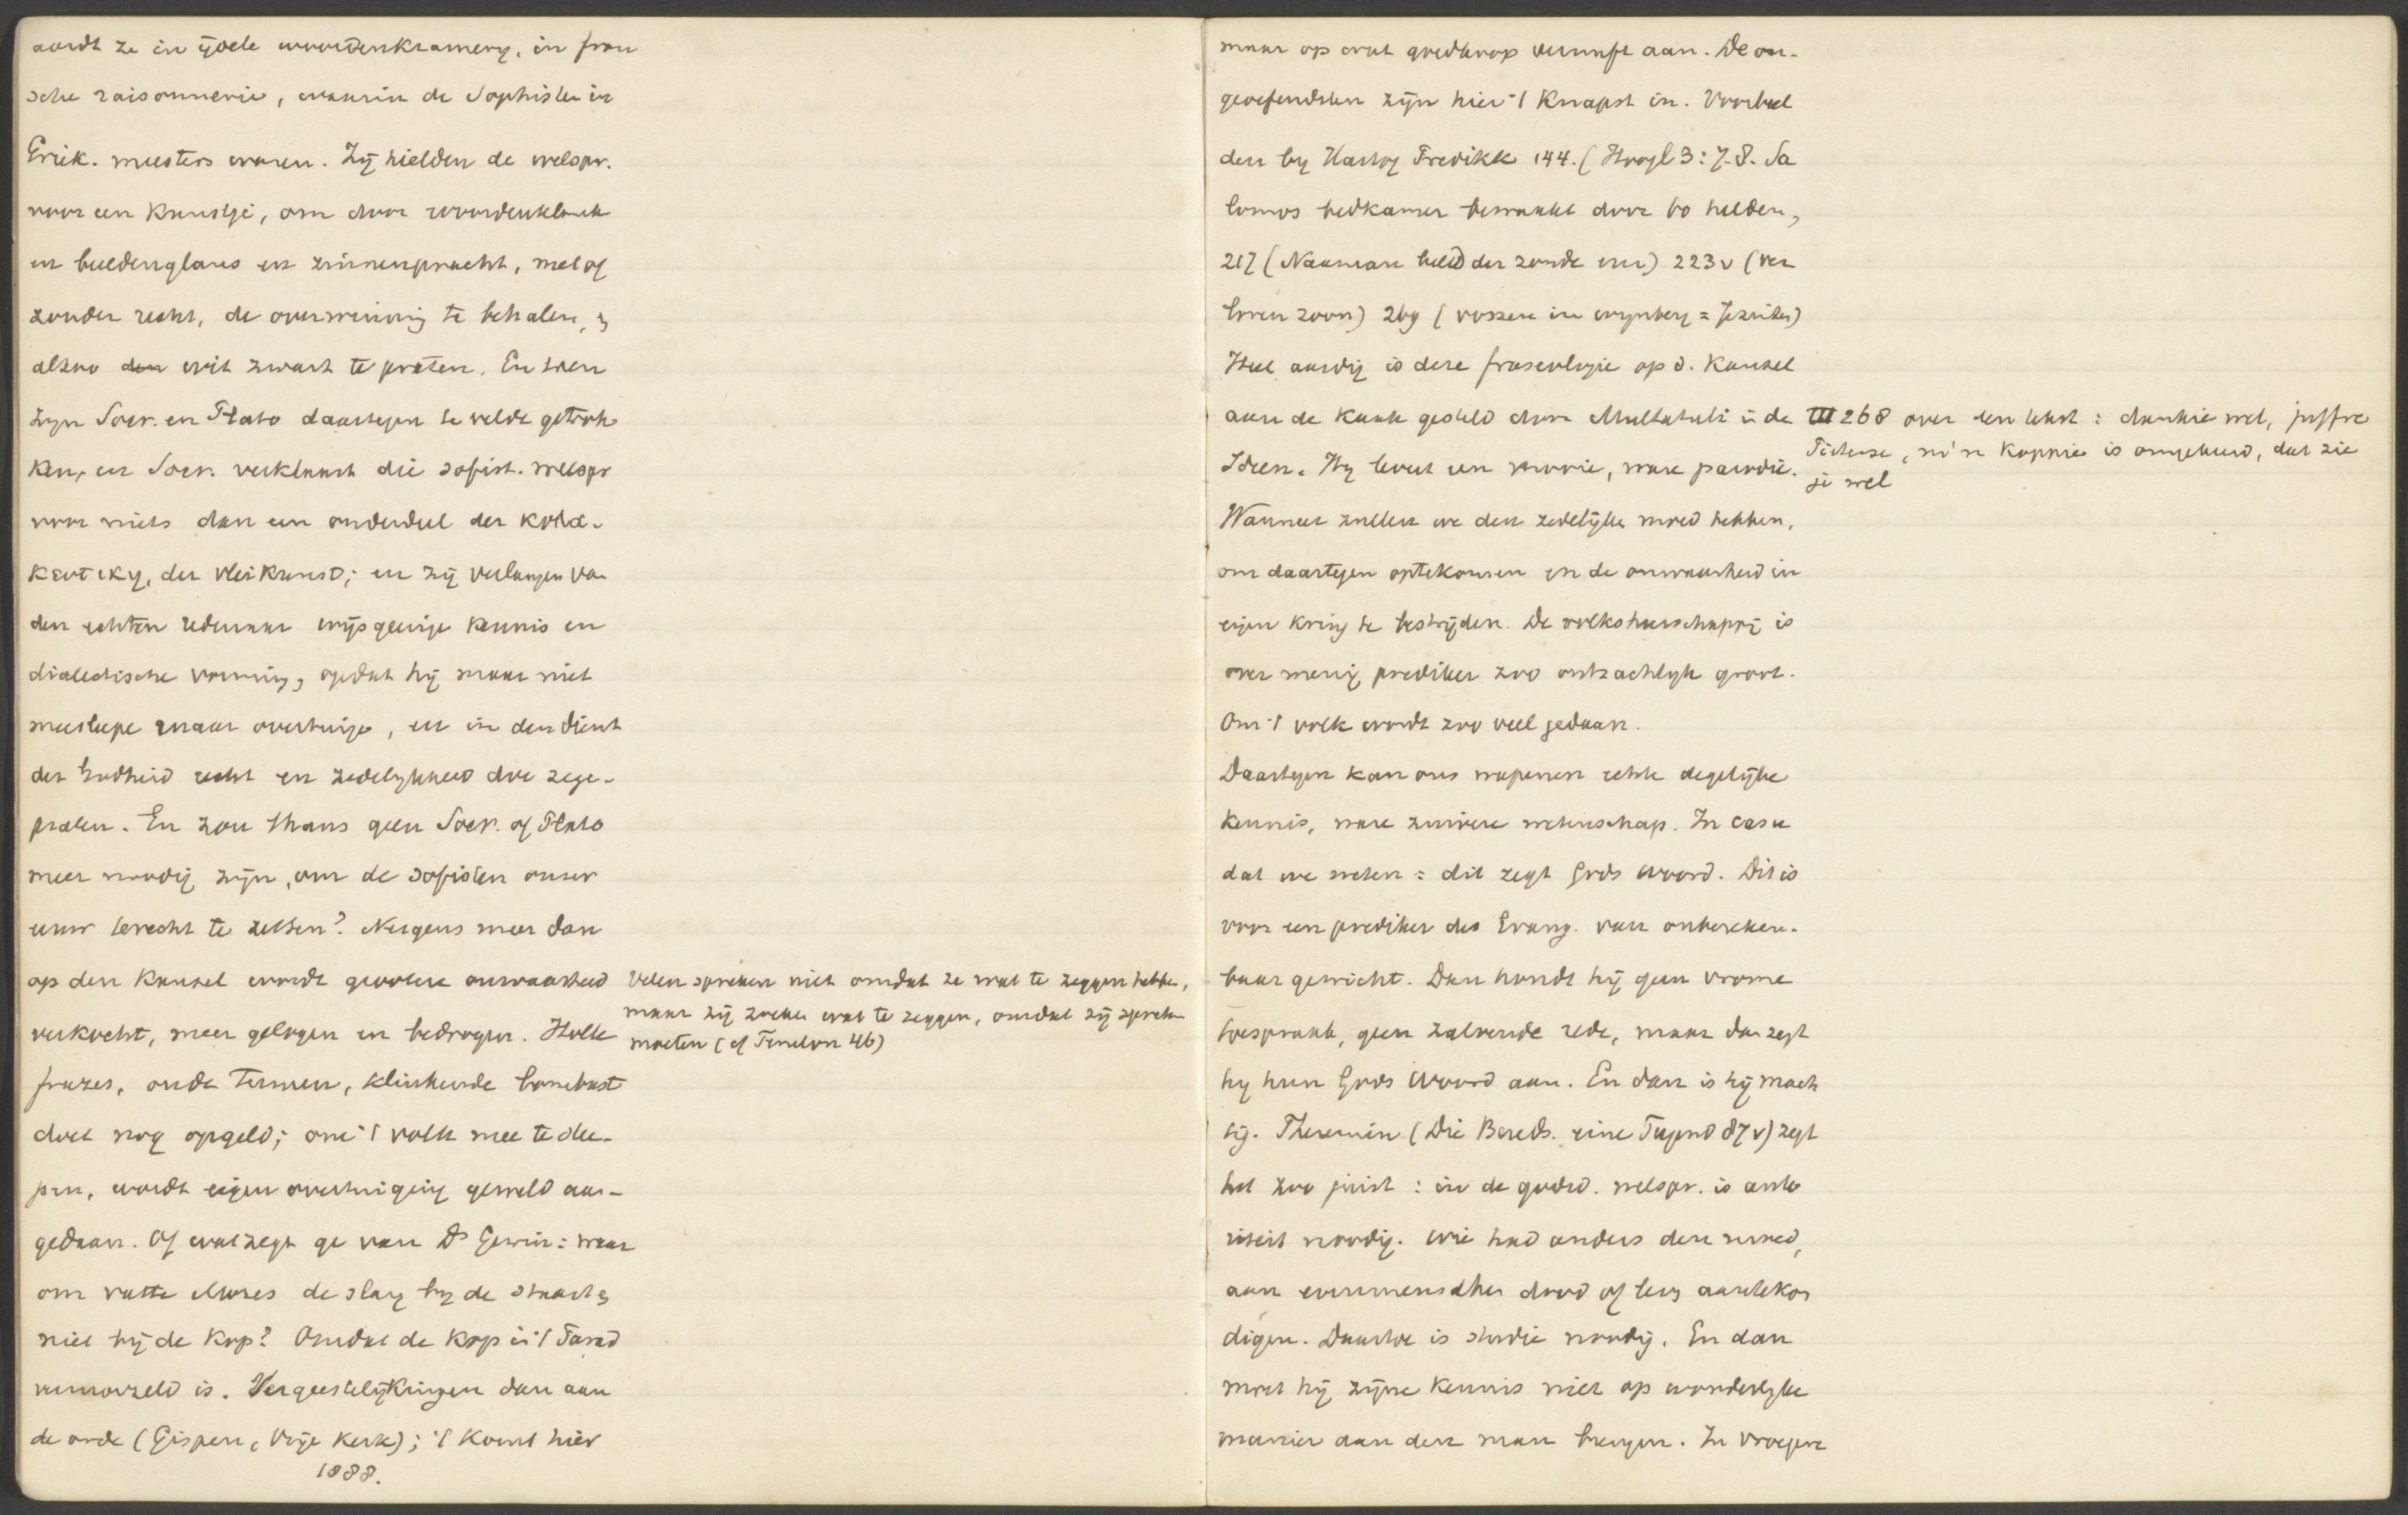 aardt ze in ijdele woordenkramery, in fran
sche raisonnerie, waarin de Sophisten in
Griek. meesters waren. Zij hielden de welspr.
voor een kunstje, om door woordenklank
en beeldenglans en zinnenpracht, met of
zonder recht, de overwinning te behalen, en
alzoo den wit zwart te praten. En toen
zyn Socr. en Plato daartegen te velde getrok
ken, en Socr. verklaart die sofist. welspr
voor niets dan een onderdeel der kola-
keutiky, der vleikunst; en zij verlangen van
den echten redenaar wijsgeerige kennis en
dialectische vorming, opdat hij maar niet
meesleepe maar overtuige, en in den dienst
der Godheid recht en zedelykheid doe zege-
pralen. En zou thans geen Socr. of Plato
meer noodig zijn, om de sofisten onzer
eeuw terecht te zetten? Nergens meer dan
op den kansel wordt grootere onwaarheid
verkocht, meer gelogen en bedrogen. Holle
frazes, oude termen, klinkende bombast
doet nog opgeld; om 't volk mee te slee-
pen, wordt eigen overtuiging geweld aan-
gedaan. Of wat zegt ge van Ds Gewin: waar
om vatte Mozes de slang by de staart en
niet bij de kop? Omdat de kop in 't Parad
vermorzeld is. Vergeestelijkingen dan aan
de orde (Gispen, Vrije Kerk); 't komt hier
1888.
Velen spreken niet omdat ze wat te zeggen hebben,
maar zij zoeken wat te zeggen, omdat zij spreken
moeten (cf Fenelon 46)
maar op wat goedkoop vernuft aan. De on-
geoefendsten zijn hier 't knapst in. Voorbeel
den by Hartog Predikk 144. (Hoogl 3:7-8. Sa
lomos bedkamer bewaakt door 60 helden,
217 (Naaman beeld der zonde enz) 223v (ver
loren zoon) 269 (vossen in wynberg = Jezuiten)
Heel aardig is deze fraseologie op d. kansel
aan de kaak gesteld door Multatuli in de
Ideen. Hy levert een mooie, ware parodie.
III 268 over een tekst: dankie wel, juffrouw
Pieterse, m'n koppie is omgekeerd, dat zie
je wel
Wanneer zullen we den zedelijke moed hebben,
om daartegen optekomen en de onwaarheid in
eigen kring te bestrijden. De volksheerschappij is
over menig prediker zoo ontzachlyk groot.
Om 't volk wordt zoo veel gedaan.
Daartegen kan ons wapenen echte degelijke
kennis, ware zuivere wetenschap. In casu
dat we weten: dit zegt Gods Woord. Dit is
voor een prediker des Evang. van onbereken-
baar gewicht. Dan houdt hij geen vrome
toespraak, geen zalvende rede, maar dan zegt
hy hun Gods Woord aan. En dan is hij mach
tig. Theremin (Die Bereds. eine Tugend 87v) zegt
het zoo juist: in de godsd. welspr. is auto
riteit noodig. Wie had anders den moed,
aan evenmenschen dood of leven aantekon
digen. Daartoe is studie noodig. En dan
moet hij zijne kennis niet op wonderlyke
manier aan den man brengen. In vroegere